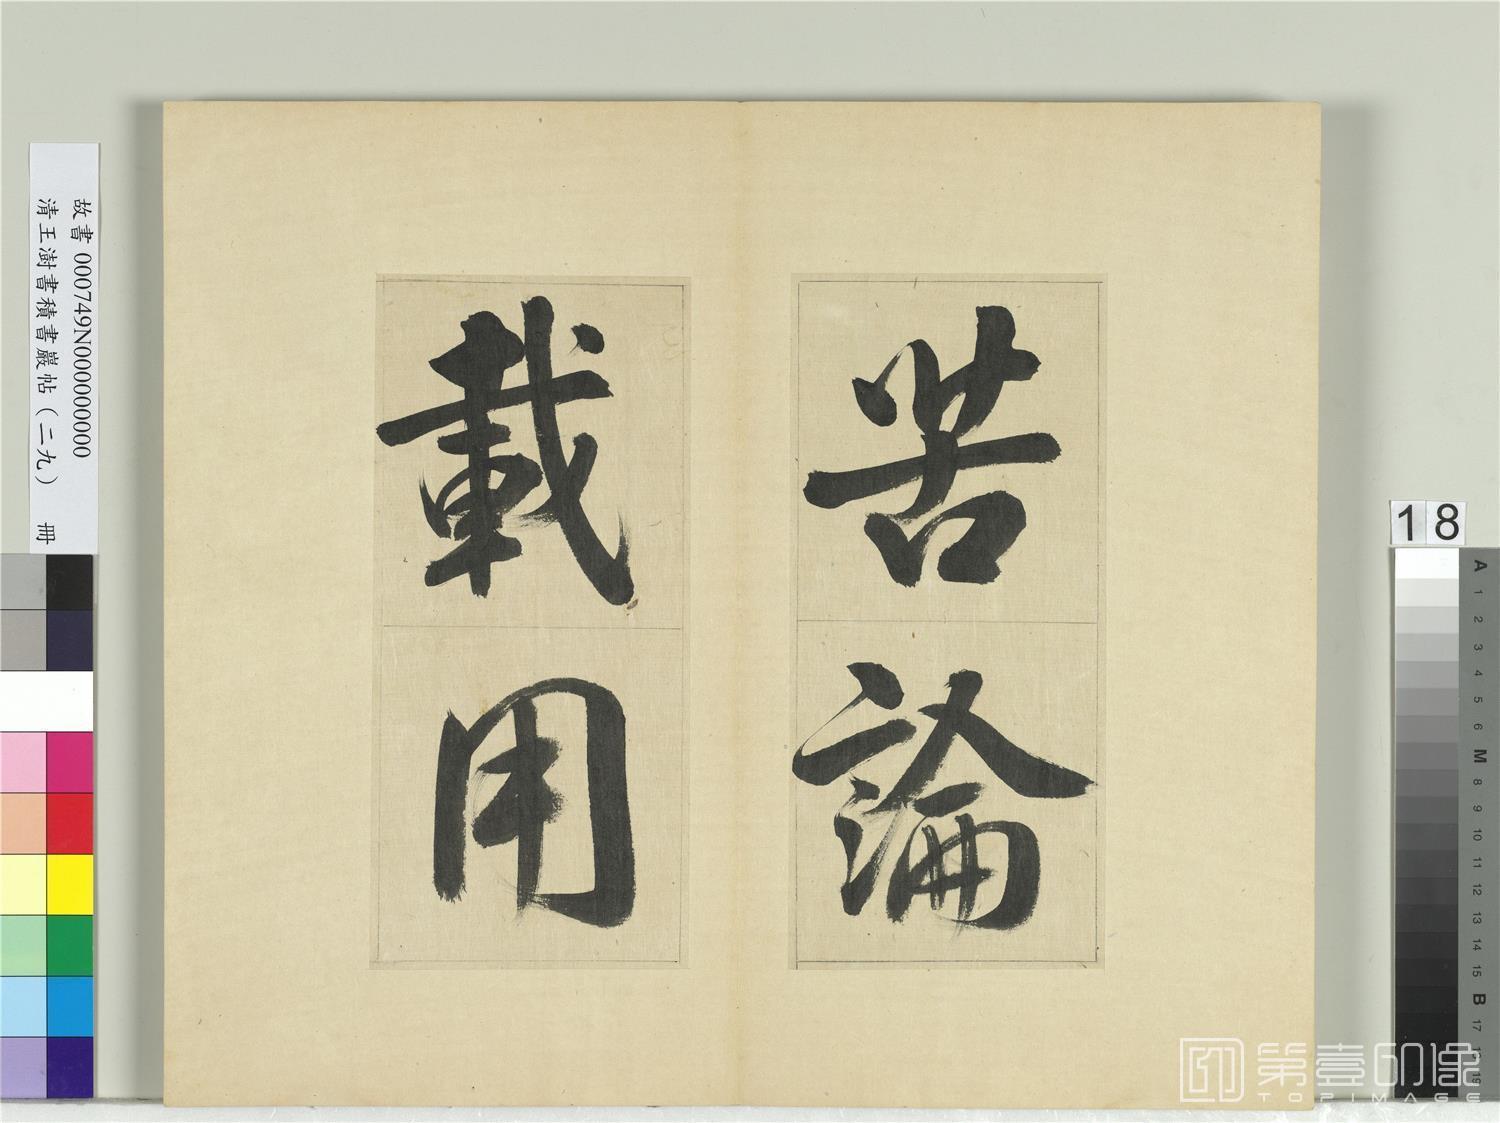 苦論
載用
故書 000749N000000000
清王澍書積書巖帖（二九） 冊
18
A
1
2
3
4
5
6
M
8
9
10
11
12
13
14
15
B
17
18
19
第壹印像
TOPIMAGE